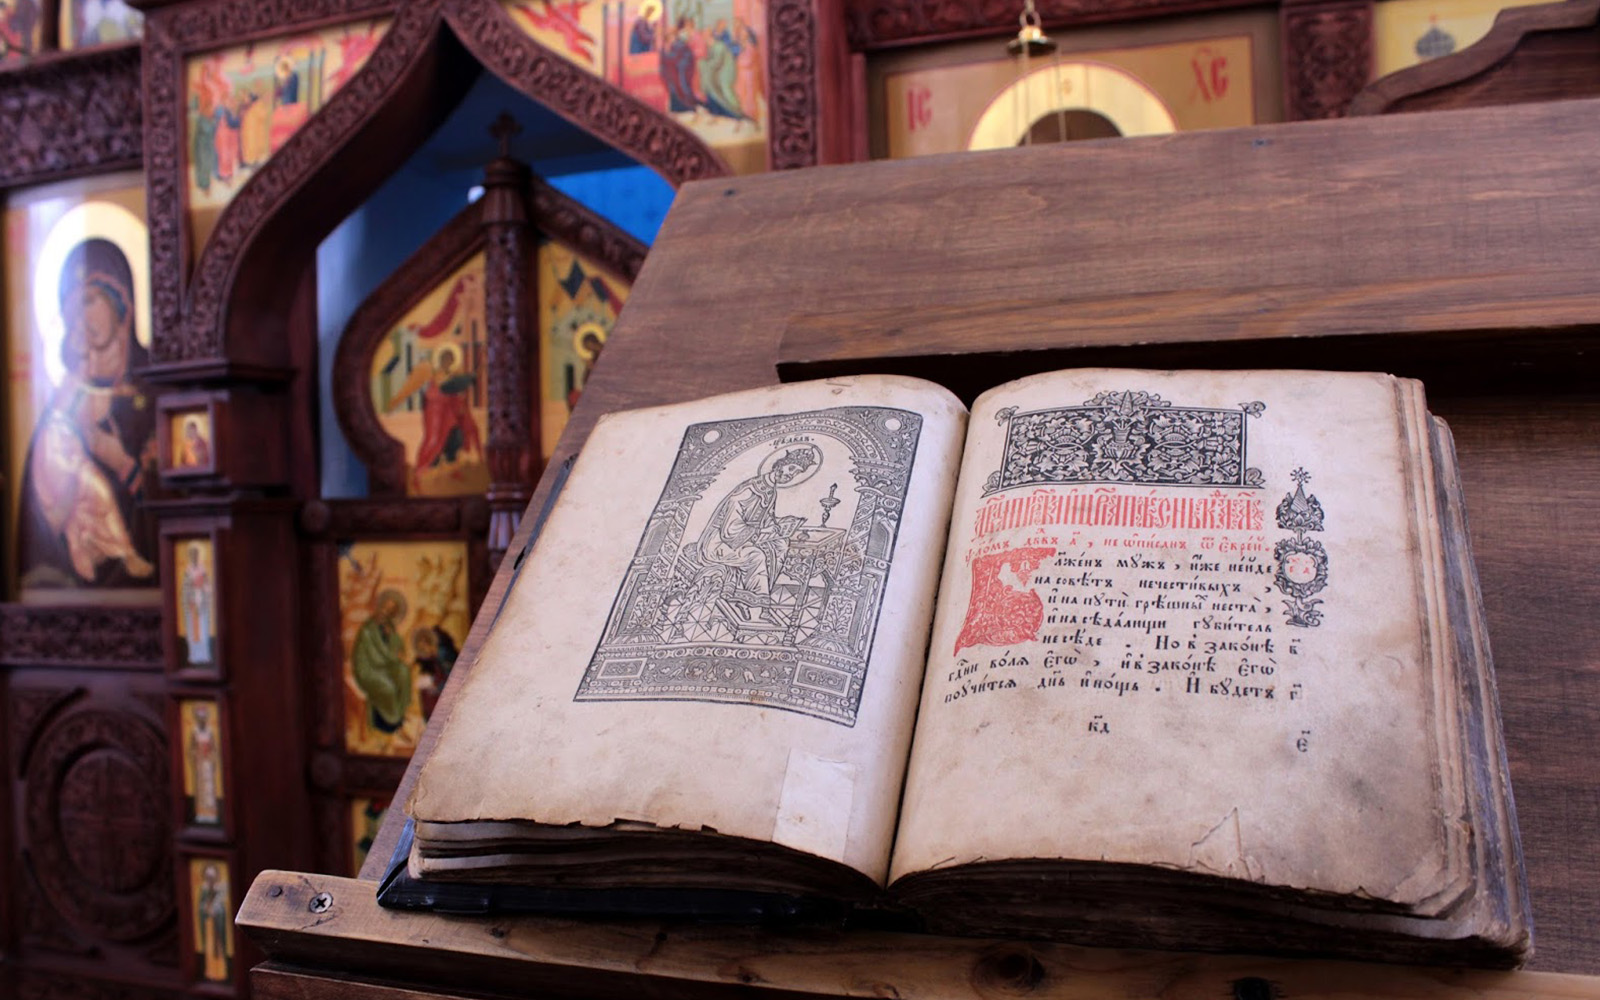 І҃С Х҃С
ѱало́мъ дв҃дъ а҃ , не ѡ҆пи́санъ ѿ є҆вре́й .
Бл҃же́нъ мꙋ́жъ , и҆́же не и҆́де
на совѣ́тъ нечести́выхъ ,
и҆ на пꙋтѝ грѣ́шныⷯ не ста̀ ,
и҆ на сѣда́лищи гꙋби́тель
не сѣ́де . Но в̾ зако́нѣ в҃
гдⷭ҇ни во́лѧ є҆гѡ̀ , и҆ в̾ зако́нѣ є҆гѡ̀
поꙋчи́тсѧ дн҃ь и҆ но́щь . И҆ бꙋ́детъ г҃
к҃д
є҃